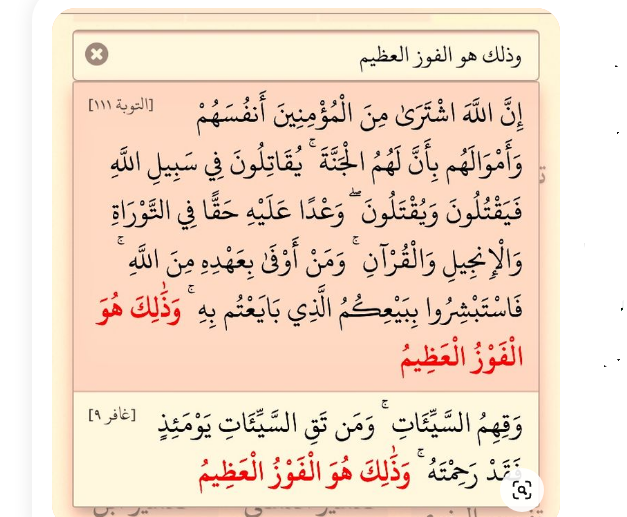 وذلك هو الفوز العظيم
إِنَّ اللَّهَ اشْتَرَىٰ مِنَ الْمُؤْمِنِينَ أَنفُسَهُمْ [التوبة ١١١]
وَأَمْوَالَهُم بِأَنَّ لَهُمُ الْجَنَّةَ ۚ يُقَاتِلُونَ فِي سَبِيلِ اللَّهِ
فَيَقْتُلُونَ وَيُقْتَلُونَ ۖ وَعْدًا عَلَيْهِ حَقًّا فِي التَّوْرَاةِ
وَالْإِنجِيلِ وَالْقُرْآنِ ۚ وَمَنْ أَوْفَىٰ بِعَهْدِهِ مِنَ اللَّهِ ۚ
فَاسْتَبْشِرُوا بِبَيْعِكُمُ الَّذِي بَايَعْتُم بِهِ ۚ وَذَٰلِكَ هُوَ
الْفَوْزُ الْعَظِيمُ
وَقِهِمُ السَّيِّئَاتِ ۚ وَمَن تَقِ السَّيِّئَاتِ يَوْمَئِذٍ [غافر ٩]
فَقَدْ رَحِمْتَهُ ۚ وَذَٰلِكَ هُوَ الْفَوْزُ الْعَظِيمُ